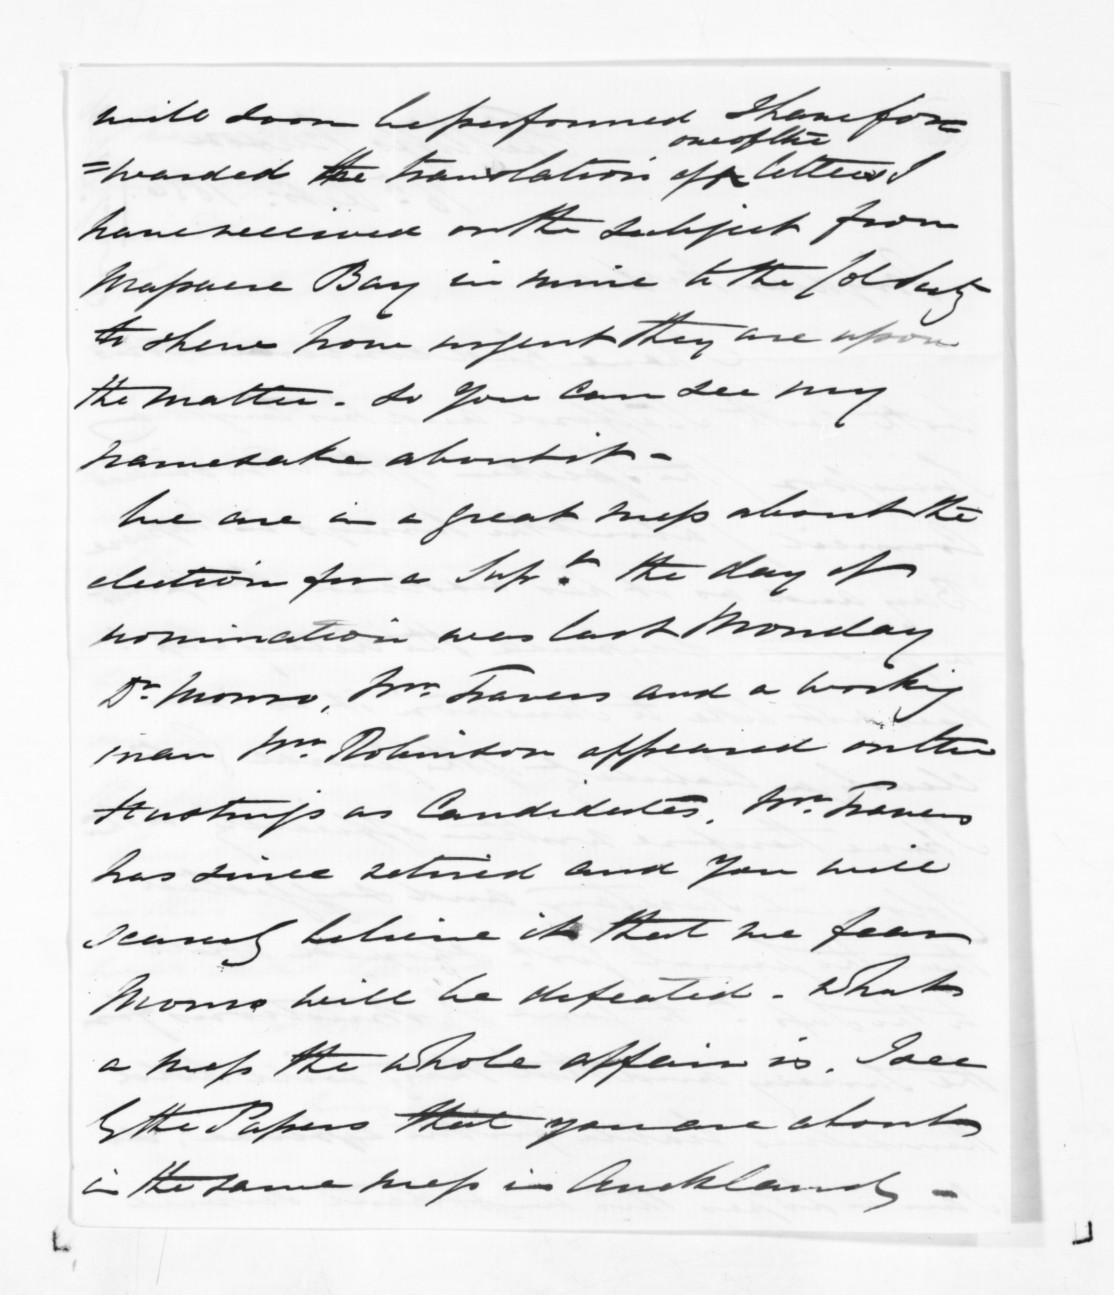 will soon be performed I have for=
=warded the translation of one of the letters I
have received on the subject from
Massacre Bay in mine to the Col Secty
to shew how urgent they are upon
the matter. So you can see my
namesake about it -
We are in a great mess about the
election for a Supt. the day of
nomination was last Monday
Dr. Monro, Mr. Travers and a working
man Mr. Robinson appeared on the
Hustings as Candidates. Mr. Travers
has since retired and you will
scarcely believe it that we fear
Monro will be defeated - What
a mess the whole affair is. I see
by the Papers that you are about
in the same mess in Auckland -